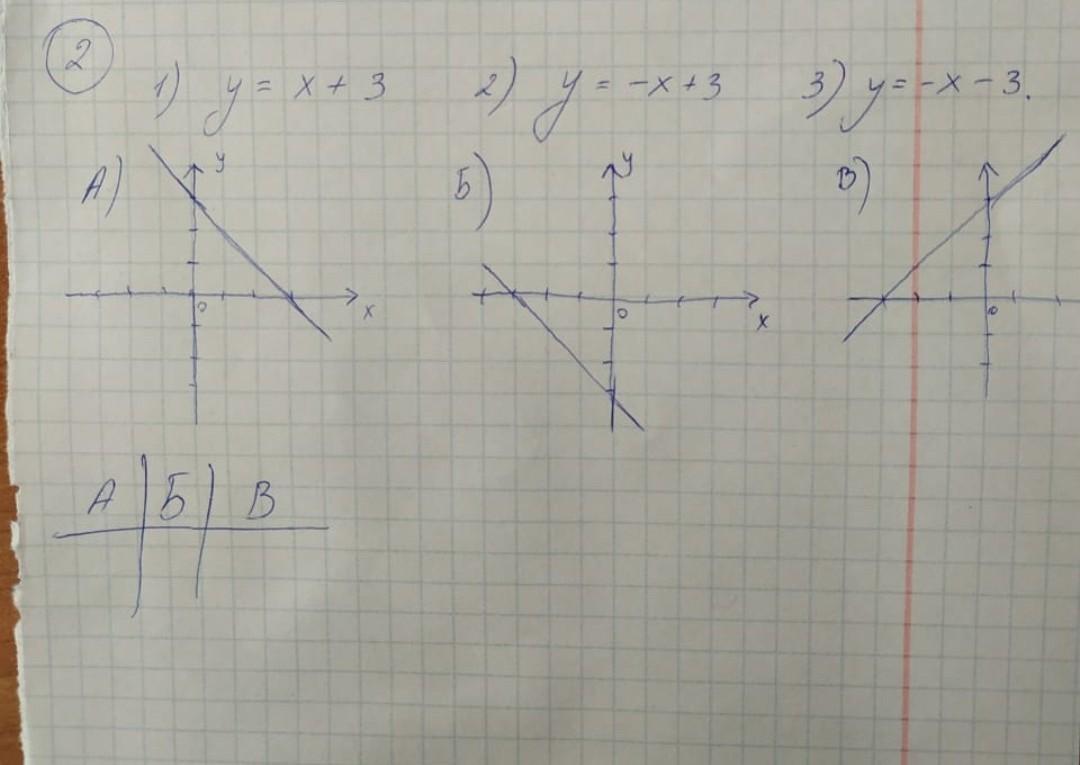 2
1) y = x + 3 2) y = -x + 3 3) y = -x - 3.
А) y Б) y В)
0 x 0 x 0
А Б В